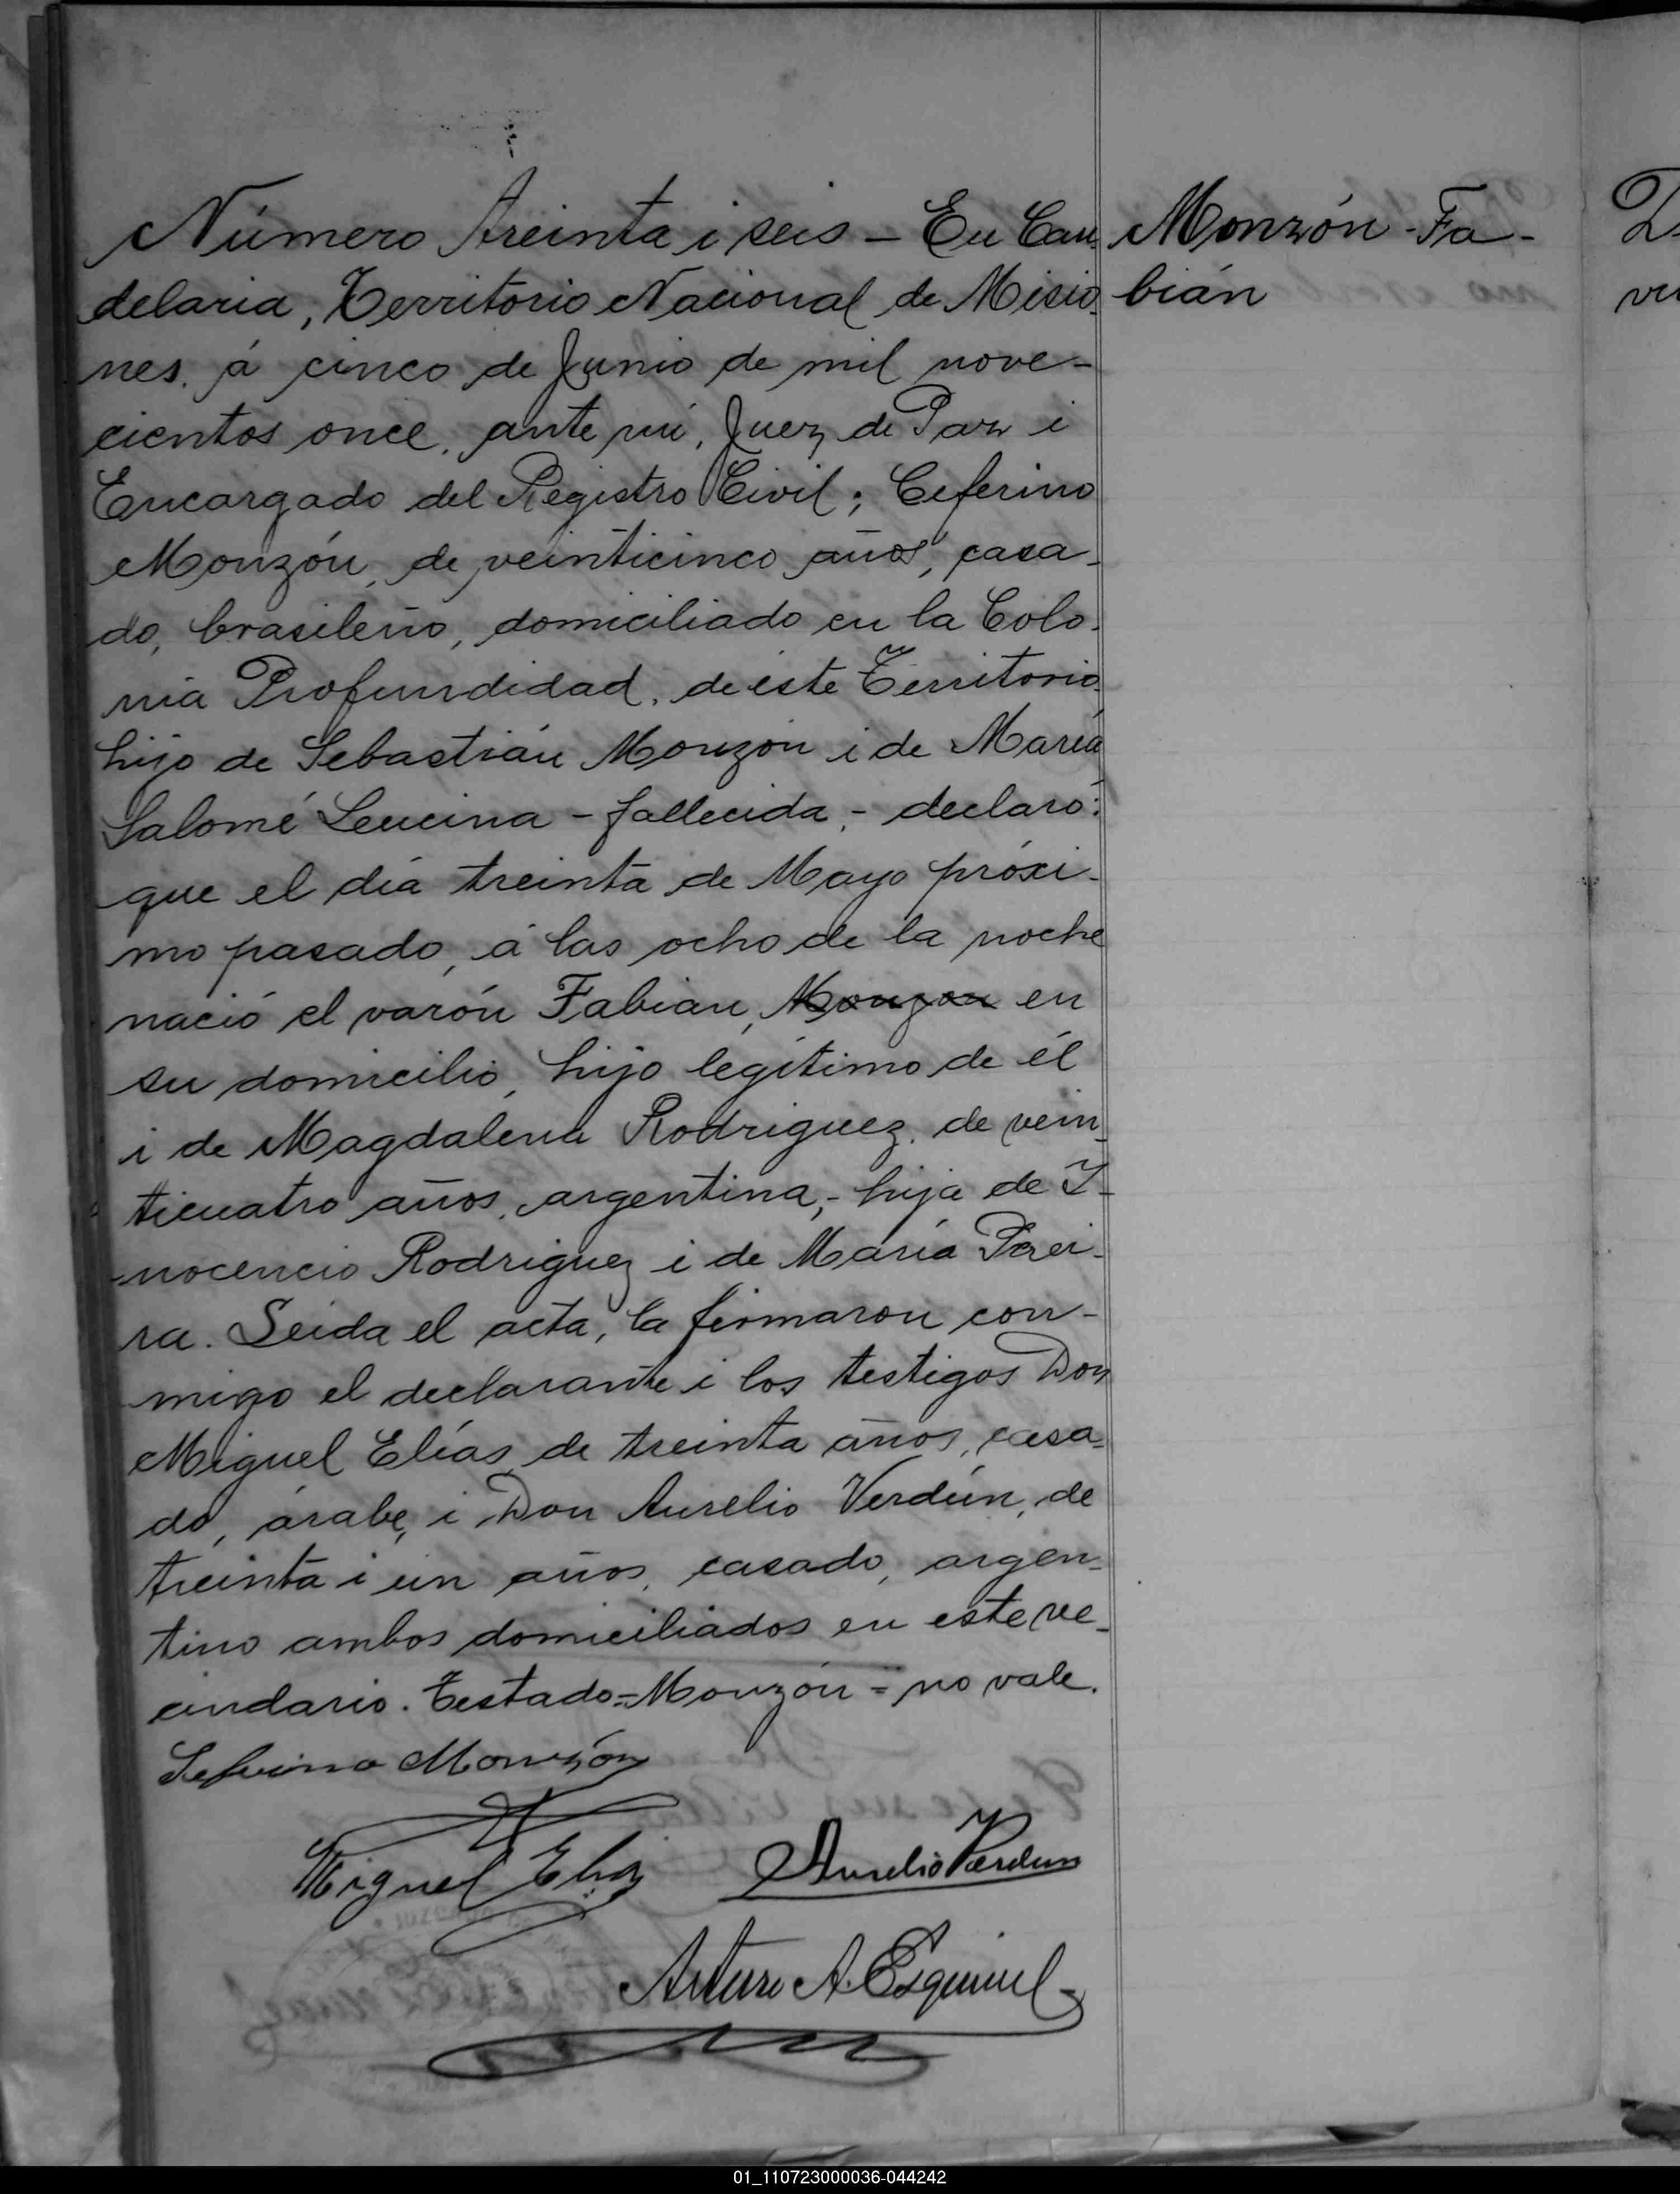 Número treinta i seis – En Can-
delaria, Territorio Nacional de Misio-
nes, á cinco de Junio de mil nove-
cientos once, ante mí, Juez de Paz i
Encargado del Registro Civil; Ceferino
Monzón, de veinticinco años, casa-
do, brasileño, domiciliado en la Colo-
nia Profundidad, de este Territorio,
hijo de Sebastián Monzón i de María
Salomé Leucina - fallecida, - declaró:
que el día treinta de Mayo próxi-
mo pasado, á las ocho de la noche
nació el varón Fabian, Monzon en
su domicilio, hijo legítimo de él
i de Magdalena Rodriguez, de vein-
ticuatro años, argentina, - hija de I-
nocencio Rodriguez i de María Perei-
ra. Leida el acta, la firmaron con-
migo el declarante i los testigos Don
Miguel Elías, de treinta años, casa-
do, árabe, i Don Aurelio Verdún, de
treinta i un años, casado, argen-
tino ambos domiciliados en este ve-
cindario. Testado = Monzón = no vale.
Seferino Monzón
Miguel Elias
Aurelio Verdun
Arturo A. Esquivel
Monzón - Fa-
bián
01_110723000036-044242